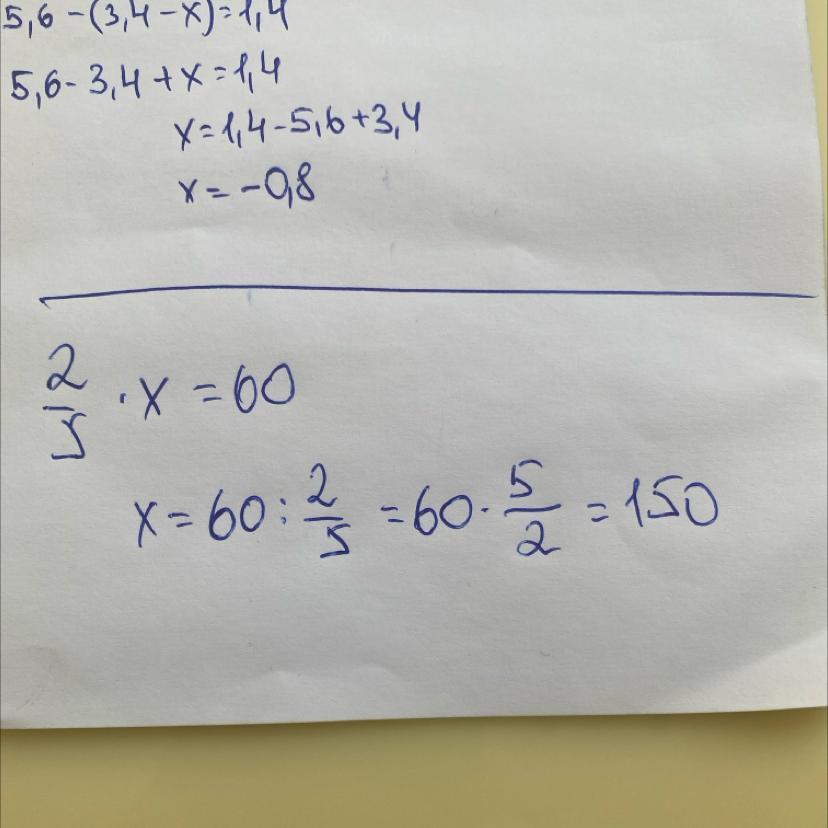 5,6-(3,4-x)=1,4
5,6-3,4+x=1,4
x=1,4-5,6+3,4
x=-0,8
2/5 · x = 60
x=60:2/5=60·5/2=150